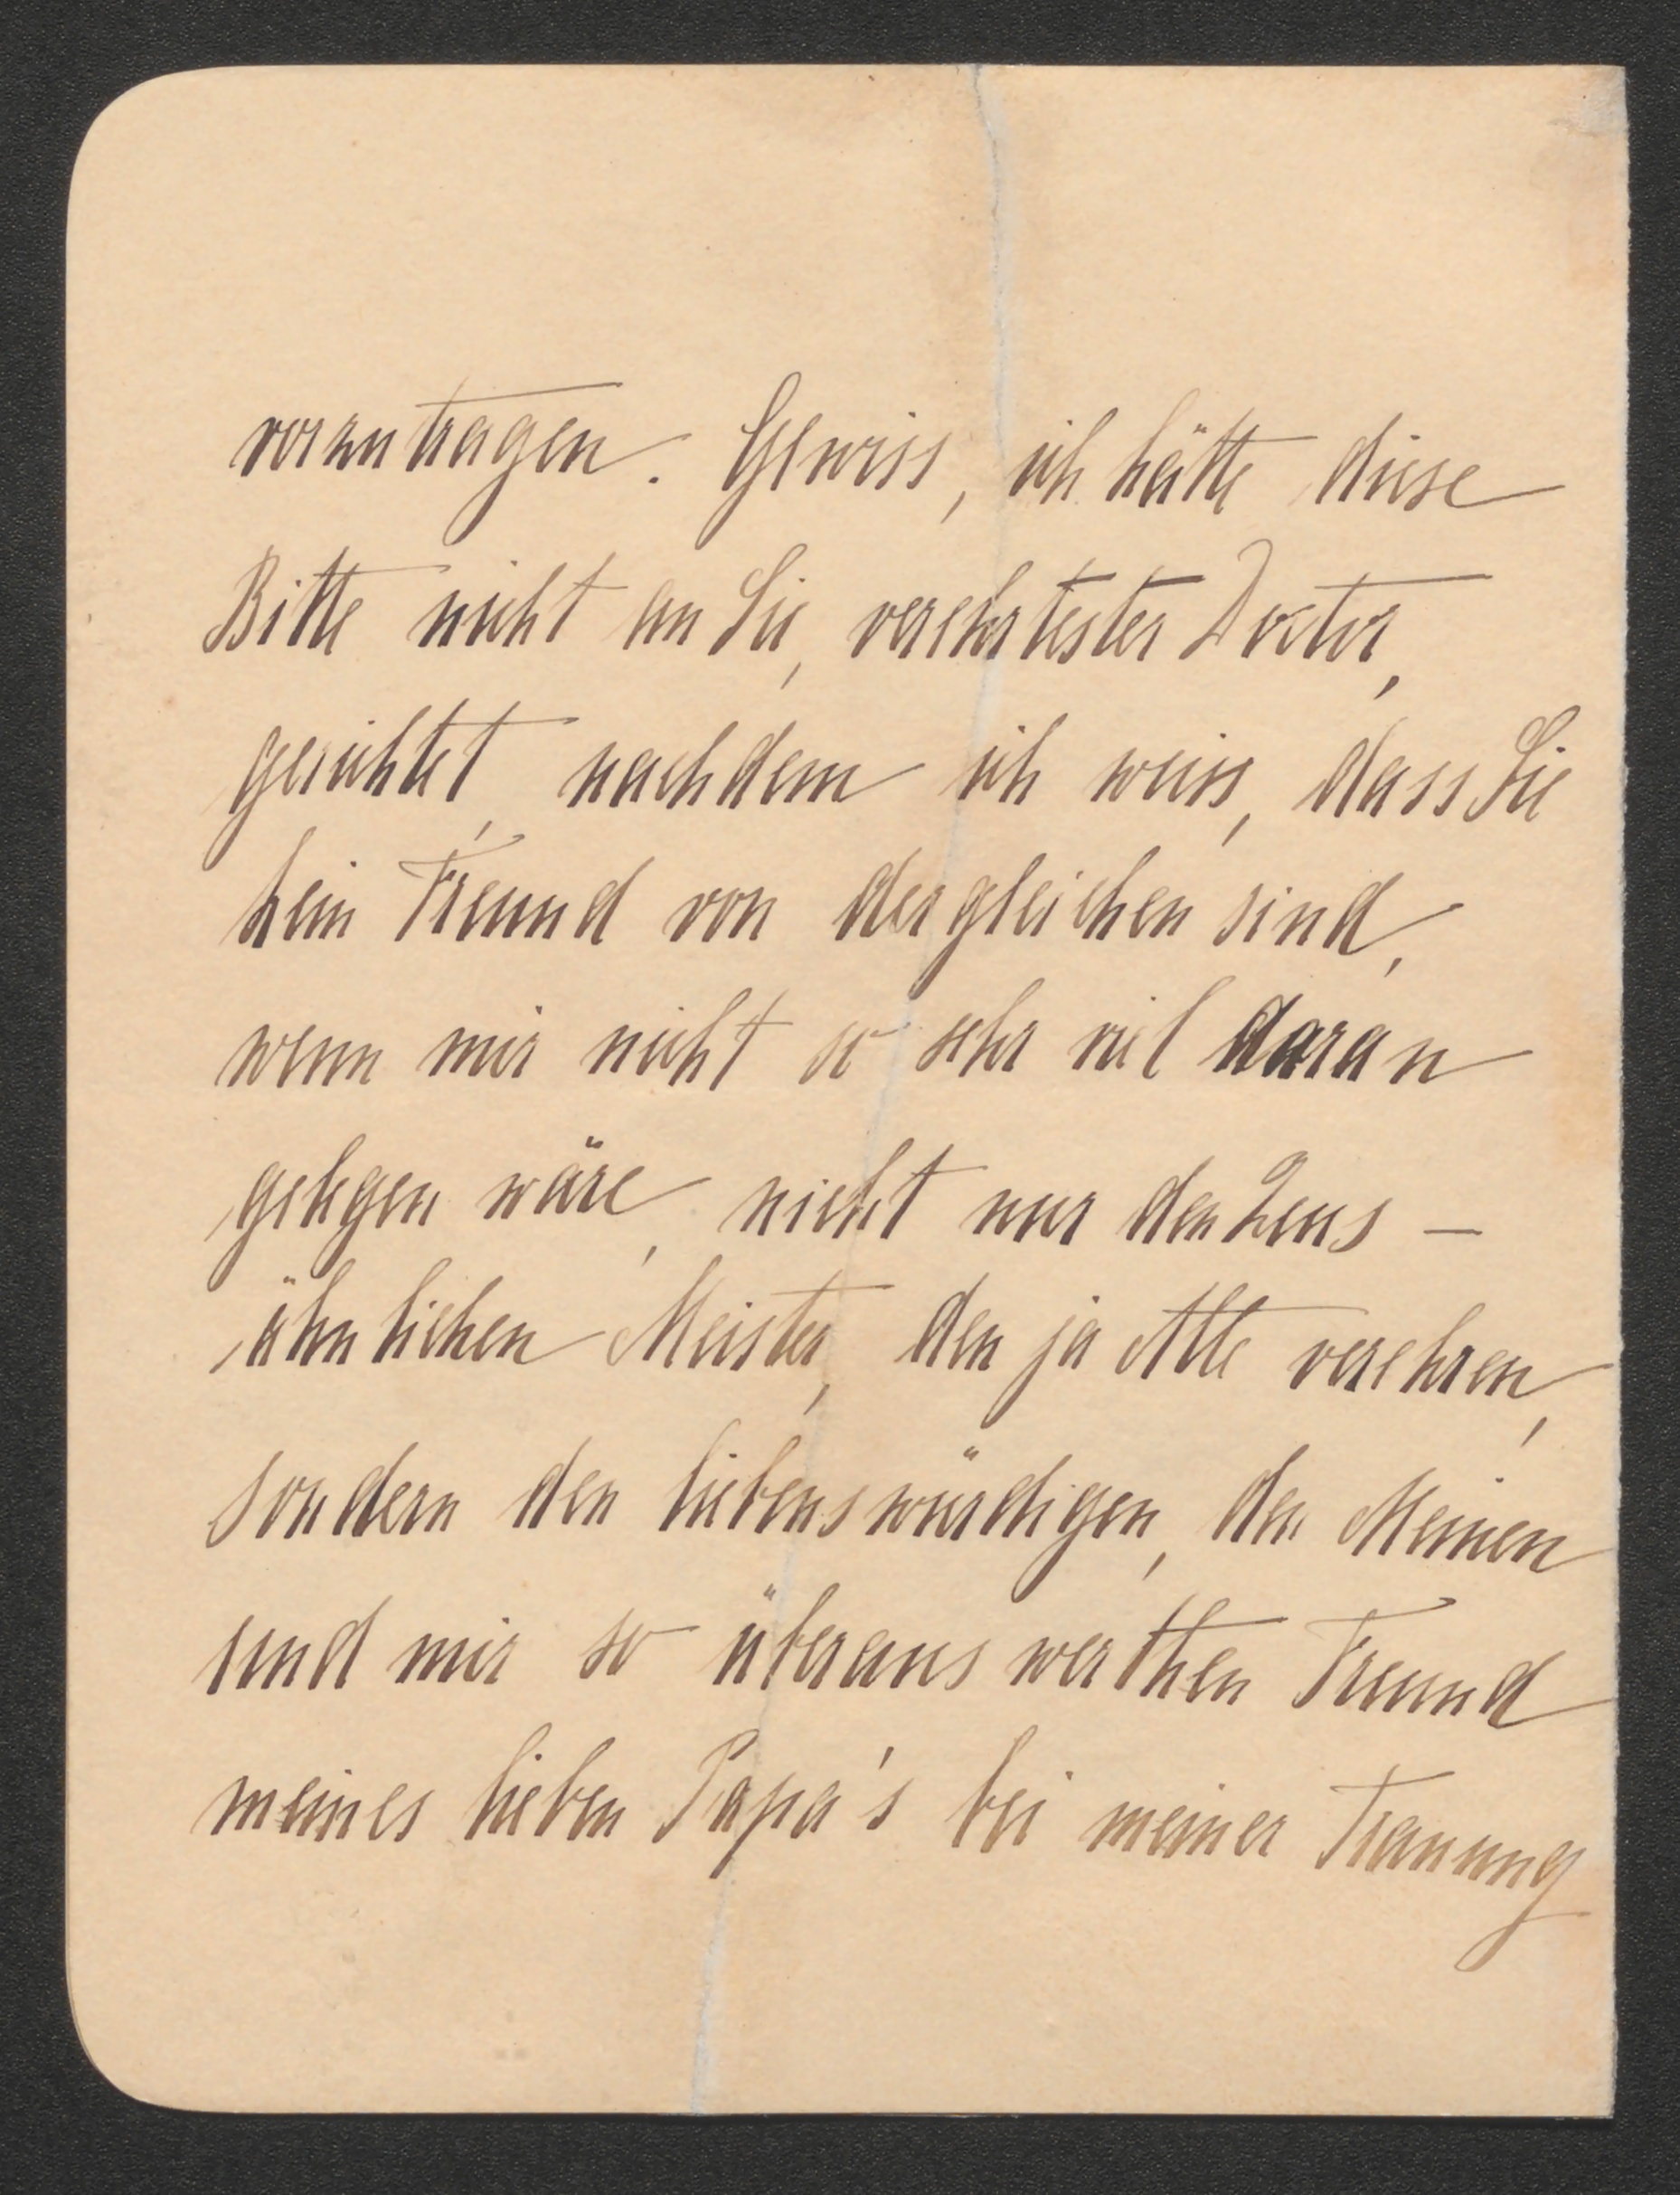 vorzutragen. Gewiss, ich hätte diese
Bitte nicht an Sie, verehrtester Doctor,
gerichtet, nachdem ich weiss, dass Sie
kein Freund von dergleichen sind,
wenn mir nicht so sehr viel daran
gelegen wäre, nicht nur den Zeus –
ähnlichen Meister, den ja Alle verehren,
sondern den liebenswürdigen, den Meinen
und mir so überaus werthen Freund
meines lieben Papa's bei meiner Trauung